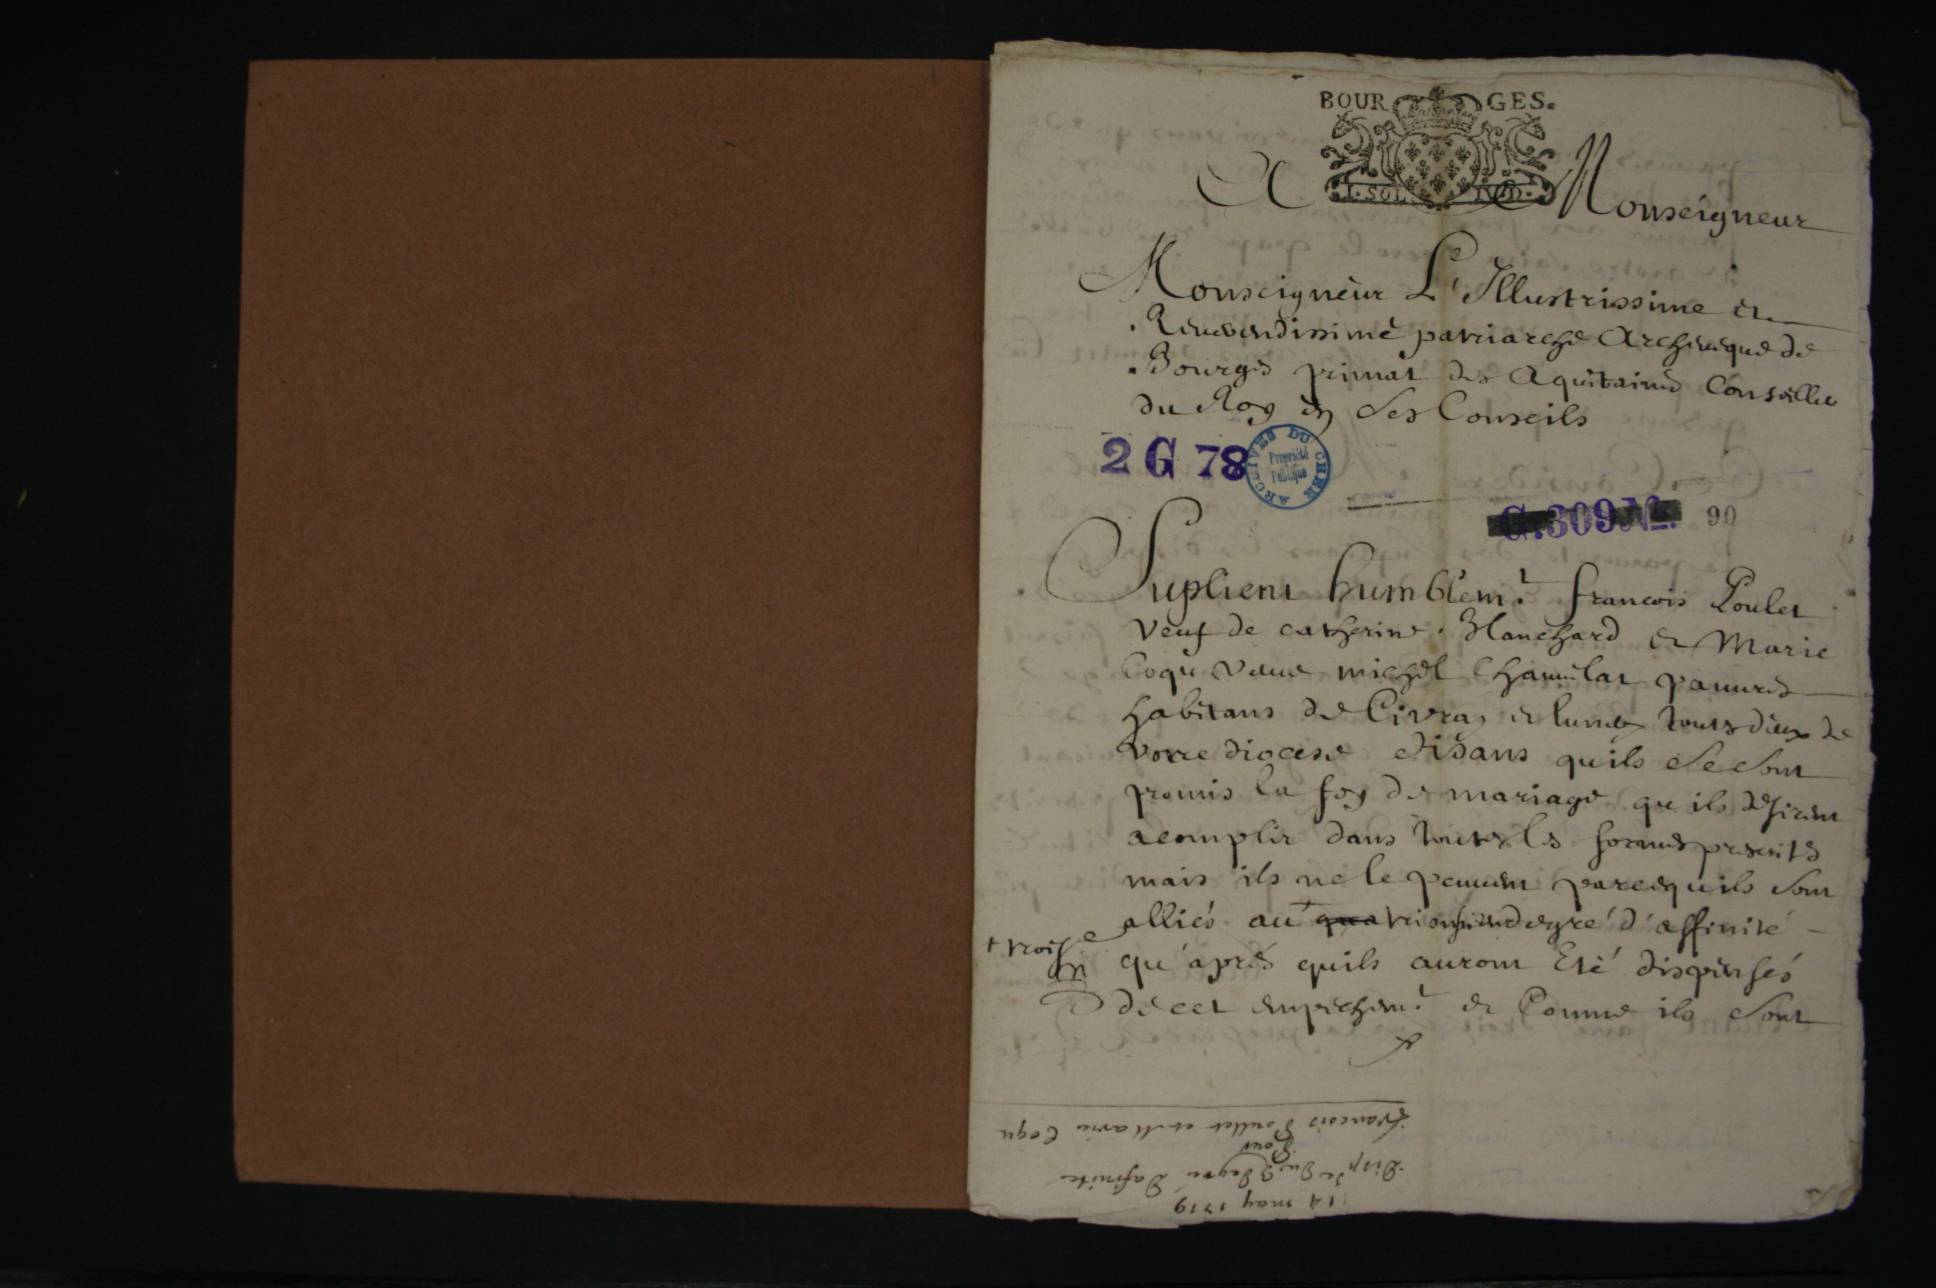 BOURGES.
1. SOL IV.D.
A Monseigneur
Monseigneur L'Illustrissime et
Reverendissime patriarche Archeveque de
Bourges primat des Aquitaines Conseiller
du Roy en ses Conseils
2 G 78
ARCHIVES DU CHER
Propriété
Publique
G.309 No. 90
Suplient humblemt. francois Poulet
veuf de catherine Blanchard et Marie
Coqu veuve michel Chamelat pauvres
habitans de Civray et lunery touts deux de
votre diocese disans quils se sont
promis la foy de mariage qu ils desirent
acomplir dans toutes les formes prescrites
mais ils ne le peuvent parcequils sont
alliés au degré d'affinité
+ trois e
qu'après quils auront Eté dispensés
de cet empechemt. et Comme ils sont
14 may 1719
Dispse Du 3 degré Dafinite
Pour
francois Poullet et Marie Coqu